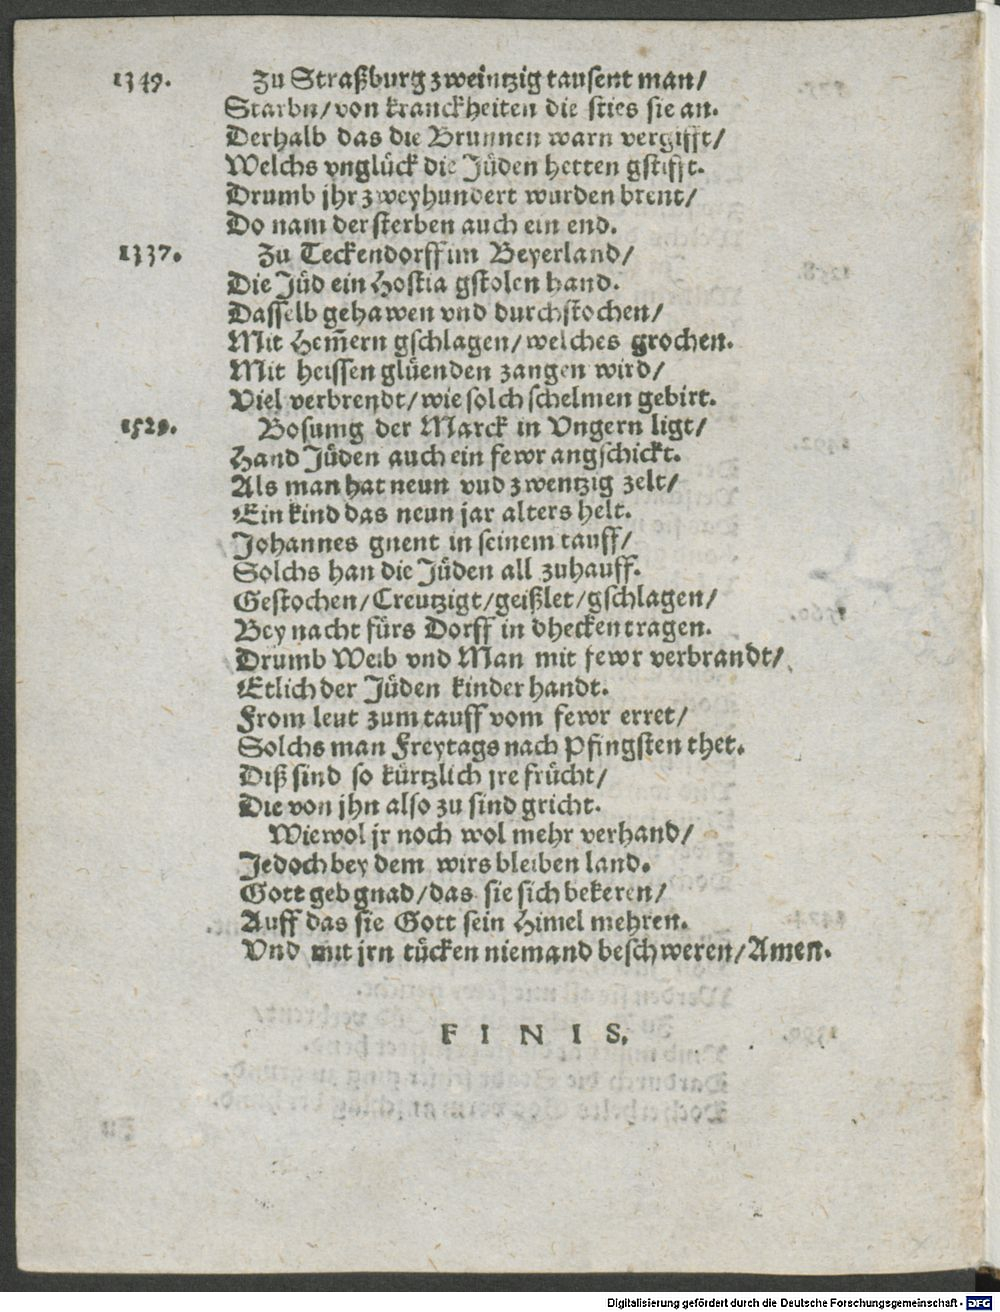 1349. Zu Straßburg zweintzig tausent man/
Starbn/ von kranckheiten die sties sie an.
Derhalb das die Brunnen warn vergifft/
Welchs vnglück die Jüden hetten gstifft.
Drumb jhr zweyhundert wurden brent/
Do nam der sterben auch ein end.
1337. Zu Teckendorff im Beyerland/
Die Jüd ein Hostia gstolen hand.
Dasselb gehawen vnd durchstochen/
Mit Hem̃ern gschlagen/ welches grochen.
Mit heissen glüenden zangen wird/
Viel verbrendt/ wie solch schelmen gebirt.
1529. Bosunig der Marck in Vngern ligt/
Hand Jüden auch ein fewr angschickt.
Als man hat neun vud zwentzig zelt/
Ein kind das neun jar alters helt.
Johannes gnent in seinem tauff/
Solchs han die Jüden all zuhauff.
Gestochen/ Creutzigt/ geißlet/ gschlagen/
Bey nacht fürs Dorff in dhecken tragen.
Drumb Weib vnd Man mit fewr verbrandt/
Etlich der Jüden kinder handt.
From leut zum tauff vom fewr erret/
Solchs man Freytags nach Pfingsten thet.
Diß sind so kürtzlich jre frücht/
Die von jhn also zu sind gricht.
Wiewol jr noch wol mehr verhand/
Jedoch bey dem wirs bleiben land.
Gott geb gnad/ das sie sich bekeren/
Auff das sie Gott sein Himel mehren.
Vnd mit jrn tücken niemand beschweren/ Amen.
F I N I S.
Digitalisierung gefördert durch die Deutsche Forschungsgemeinschaft - DFG